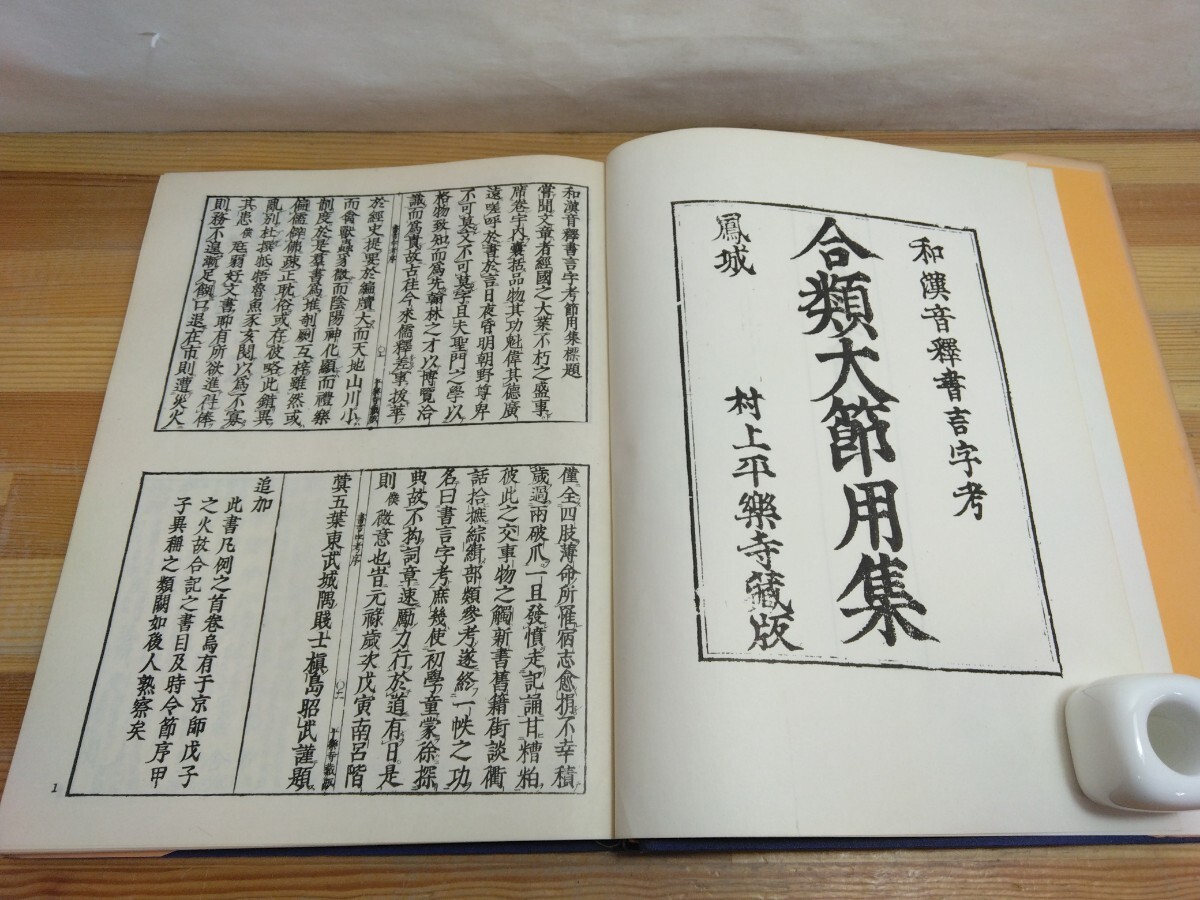 和漢音釋書言字考
合類大節用集
鳳城
村上平樂寺藏版
和漢音釋書言字考節用集標題
嘗聞文章者經國之大業不朽之盛事
席卷宇內囊括品物其功魁偉其德廣
遠嗟呼於書於言日夜昏明朝野尊卑
不可莫文不可莫字且夫聖門之學以
格物致知而爲先翰林之才以博覽洽
識而爲貴故古往今來儒釋差事拔華
於經史提要於編牘大而天地山川小
而禽獸蟲豸微而陰陽神化顯而禮樂
制度於是羣書爲堆剞劂互梓雖然或
偏儒僻佛疎正耽俗或存彼略此錯異
亂別杜撰牴牾魯魚豕亥閱以爲不寡
其患僕尫弱好文書聊有所欲進仕俸
則務不遑漸足餬口退在市則遭災火
僅全四肢薄命所罹宿志愈捐不幸積
歲過兩破爪一旦發憤走記誦甘糟粕
彼此之交事物之觸新書舊籍街談衢
話拾摭綜緝部類參考遂終一帙之功
名曰書言字考庶幾使初學童蒙徐探
典故不拘詞章速勵力行於道有日是
則僕微意也旹元祿歲次戊寅南呂階
蓂五葉東武城隅賤士槇島昭武謹題
追加
此書凡例之首卷烏有于京師戊子
之火故合記之書目及時令節序甲
子異稱之類闕如後人熟察矣
1